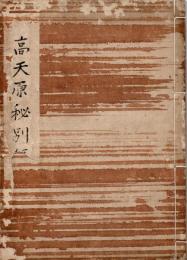 高天原秘別